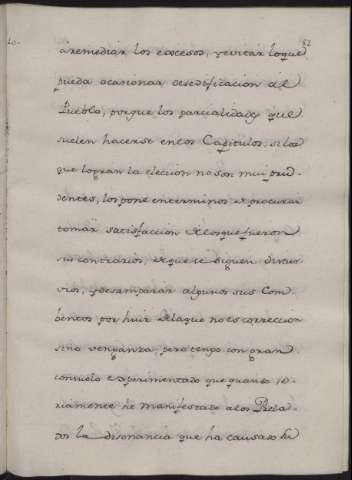 52
a remediar los excesos, y evitar lo que
pueda ocasionar desedificacion al
Pueblo, porque los parcialidades que
suelen hacerse en los Capitulos, si los
que logran la eleccion no son mui pru-
dentes, los pone en terminos de procurar
tomar satisfaccion de los que fueron
sus contrarios, de que se siguen distur-
vios, y desamparar algunos sus Com-
bentos por huir de la que no es correccion
sino venganza, pero tengo con gran
consuelo experimentado que quanto se-
riamente he manifestado a los Prela-
dos la disonancia que ha causado su